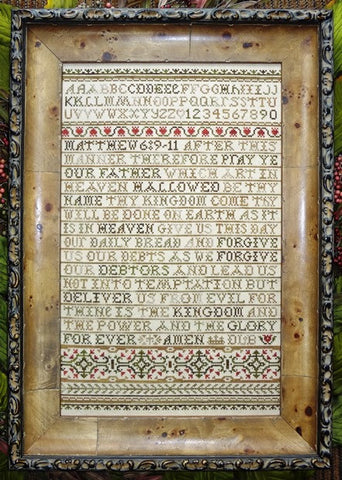 AAABBCCDDEEEFFGGHHIIJJ
KKLLMMNNOOPPQQRRSSTTUU
UVVWWXXYYZZ♡1234567890
MATTHEW 6:9-11 AFTER THIS
MANNER THEREFORE PRAY YE
OUR FATHER WHICH ART IN
HEAVEN HALLOWED BE THY
NAME THY KINGDOM COME THY
WILL BE DONE ON EARTH AS IT
IS IN HEAVEN GIVE US THIS DAY
OUR DAILY BREAD AND FORGIVE
US OUR DEBTS AS WE FORGIVE
OUR DEBTORS AND LEAD US
NOT INTO TEMPTATION BUT
DELIVER US FROM EVIL FOR
THINE IS THE KINGDOM AND
THE POWER AND THE GLORY
FOR EVER AMEN DLB